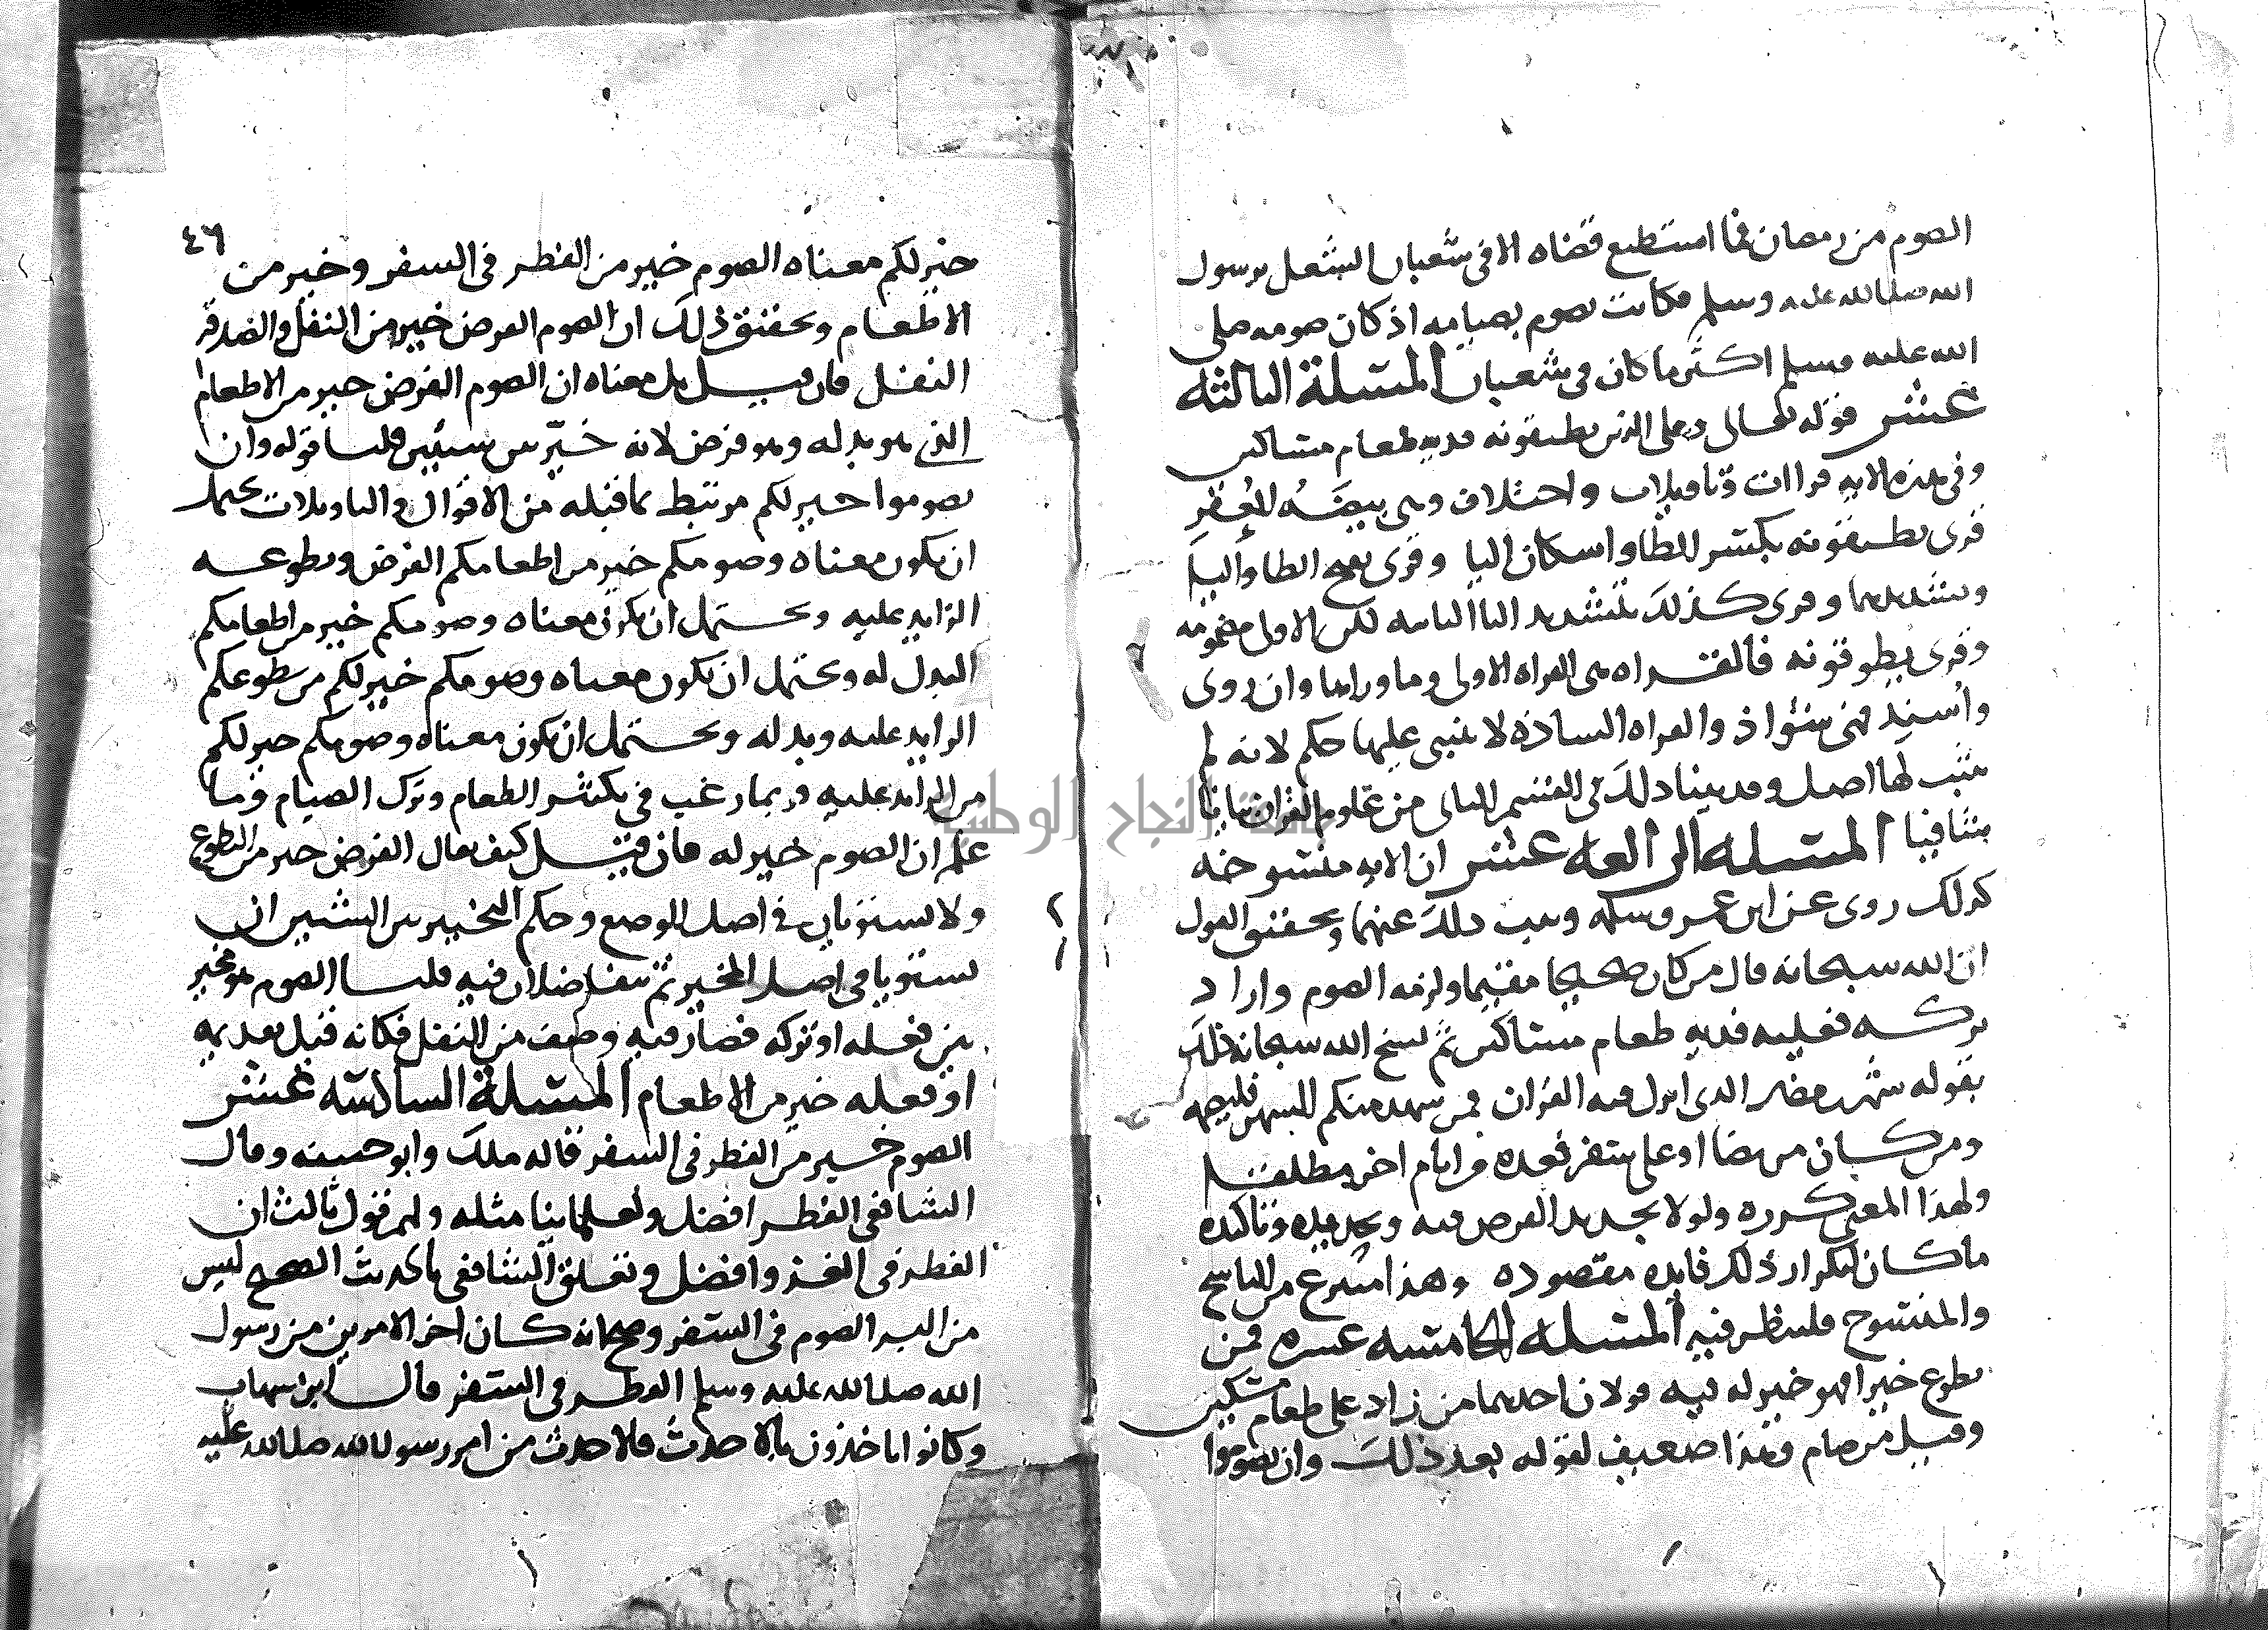 الصوم من رمضان فما استطيع قضاه الا في شعبان الشغل برسول
الله صلى الله عليه وسلم فكانت تصوم بصيامه اذ كان صومه صلى
الله عليه وسلم اكثر ما كان في شعبان المسئلة الثالثة
عشر قوله تعالى وعلى الذين يطيقونه فدية طعام مساكين
وفي هذه الاية قراات وتاويلات واختلاف وهي بيضة العقر
قرى يطيقونه بكسر الطا واسكان اليا وقرى بفتح الطا واليا
وتشديدهما وقرى كذلك بتشديد اليا الثانية لكن الاولى مضمومة
وقرى يطوقونه فالقراة هي القراة الاولى وما وراها وان روى
واسند فهي شواذ والقراة الشاذة لا ينبني عليها حكم لانه لم
يثبت لها اصل وقد بينا ذلك في القسم الثاني من علوم القران بيانا
شافيا المسئلة الرابعة عشر ان الاية منسوخة
كذلك روى عن ابن عمر وسلمة وثبت ذلك عنهما وتحقيق القول
ان الله سبحانه قال من كان صحيحا مقيما ولزمه الصوم واراد
تركه فعليه فدية طعام مساكين ثم نسخ الله سبحانه ذلك
بقوله شهر رمضن الذي انزل فيه القران فمن شهد منكم الشهر فليصمه
ومن كان مريضا او على سفر فعدة من ايام اخر مطلقا
ولهذا المعنى كرره ولولا تجديد الفرض فيه وتحديده وتاكيده
ما كان لتكرار ذلك فايدة مقصودة وهذا منتزع من الناسخ
والمنسوخ فلينظر فيه المسئلة الخامسة عشره فمن
تطوع خيرا فهو خير له فيه قولان احدهما من زاد على طعام مسكين
وقيل من صام وهذا ضعيف لقوله بعد ذلك وان تصوموا
٤٦
خير لكم معناه الصوم خير من الفطر في السفر وخير من
الاطعام وتحقيق ذلك ان الصوم الفرض خير من النفل والصدقة
النفل فان قيل بل معناه ان الصوم الفرض خير من الاطعام
الذي هو بدله وهو فرض لانه خير بين شيئين قلنا قوله وان
تصوموا خير لكم مرتبط بما قبله من الاقوال والتاويلات يحتمل
ان يكون معناه وصومكم خير من اطعامكم الفرض وتطوعه
الزايد عليه ويحتمل ان يكون معناه وصومكم خير من اطعامكم
البدل له ويحتمل ان يكون معناه وصومكم خير لكم من تطوعكم
الزايد عليه وبدله ويحتمل ان يكون معناه وصومكم خير لكم
من الزايد عليه وربما رغب في تكثير الطعام وترك الصيام وما
علم ان الصوم خير له فان قيل كيف يقال الفرض خير من التطوع
ولا يستويان في اصل الوضع وحكم التخيير بين الشيين ان
يستويا في اصل المخير ثم يتفاضلان فيه قلنا الصوم هو مخير
بين فعله او تركه فصار فيه وصف من النفل فكانه قبل بعديه
او فعله خير من الاطعام المسئلة السادسة عشر
الصوم خير من الفطر في السفر قاله ملك وابو حنيفه وقال
الشافعي الفطر افضل ولعلماينا مثله ولهم قول ثالث ان
الفطر في الغزو افضل وتعلق الشافعي بالحديث الصحيح ليس
من البر الصوم في السفر وصح انه كان اخر الامرين من رسول
الله صلى الله عليه وسلم الفطر في السفر قال ابن شهاب
وكانوا ياخذون بالاحدث فالاحدث من امر رسول الله صلى الله عليه
جامعة النجاح الوطنية